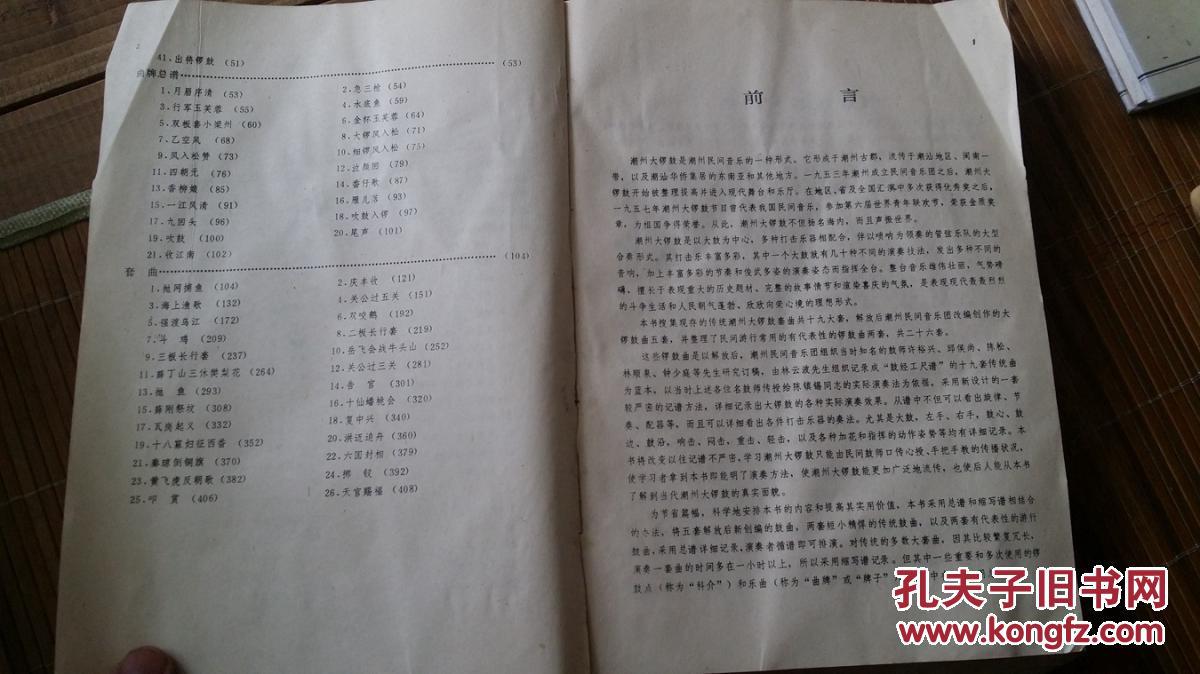 2
41、出将锣鼓 (51)
曲牌总谱 (53)
1、月眉序清 (53)
2、急三枪 (54)
3、行军玉芙蓉 (55)
4、水底鱼 (59)
5、双板套小梁州 (60)
6、金杯玉芙蓉 (64)
7、乙空凤 (68)
8、大锣风入松 (71)
9、风入松赞 (73)
10、细锣风入松 (75)
11、四朝元 (76)
12、泣颜回 (79)
13、香柳娘 (85)
14、番仔歌 (87)
15、一江风清 (91)
16、雁儿落 (93)
17、九回头 (96)
18、吹鼓入锣 (97)
19、吹鼓 (100)
20、尾声 (101)
21、收江南 (102)
套 曲 (104)
1、抛网捕鱼 (104)
2、庆丰收 (121)
3、海上渔歌 (132)
4、关公过五关 (151)
5、强渡乌江 (172)
6、双咬鹅 (192)
7、斗 鸡 (209)
8、二板长行套 (219)
9、三板长行套 (237)
10、岳飞会战牛头山 (252)
11、薛丁山三休樊梨花 (264)
12、关公过三关 (281)
13、抛 鱼 (293)
14、告 官 (301)
15、薛刚祭坟 (308)
16、十仙蟠桃会 (320)
17、瓦岗起义 (332)
18、复中兴 (340)
19、十八寡妇征西番 (352)
20、洪迈追舟 (360)
21、秦琼倒铜旗 (370)
22、六国封相 (379)
23、黄飞虎反朝歌 (382)
24、掷 钗 (392)
25、叩 贯 (406)
26、天官赐福 (408)
1
前 言
潮州大锣鼓是潮州民间音乐的一种形式。它形成于潮州古郡，流传于潮汕地区、闽南一
带，以及潮汕华侨集居的东南亚和其他地方。一九五三年潮州成立民间音乐团之后，潮州大
锣鼓开始被整理提高并进入现代舞台和乐厅。在地区、省及全国汇演中多次获得优秀奖之后，
一九五七年潮州大锣鼓节目曾代表我国民间音乐，参加第六届世界青年联欢节，荣获金质奖
章，为祖国争得荣誉。从此，潮州大锣鼓不但扬名海内，而且声振世界。
潮州大锣鼓是以大鼓为中心，多种打击乐器相配合，伴以唢呐为领奏的管弦乐队的大型
合奏形式。其打击乐丰富多彩，其中一个大鼓就有几十种不同的演奏技法，发出多种不同的
音响，加上丰富多彩的节奏和俊武多姿的演奏姿态而指挥全台。整台音乐雄伟壮丽，气势磅
礴、擅长于表现重大的历史题材、完整的故事情节和渲染喜庆的气氛，是表现现代轰轰烈烈
的斗争生活和人民朝气蓬勃、欣欣向荣心境的理想形式。
本书搜集现存的传统潮州大锣鼓套曲共十九大套，解放后潮州民间音乐团改编创作的大
锣鼓曲五套，并整理了民间游行常用的有代表性的锣鼓曲两套，共二十六套。
这些锣鼓曲是以解放后，潮州民间音乐团组织当时知名的鼓师许裕兴、邱猴尚、陈松、
林顺泉、钟少庭等先生研究订稿，由林云波先生组织记录成“鼓经工尺谱”的十九套传统曲
为蓝本，以当时上述各位名鼓师传授给陈镇锡同志的实际演奏法为依据。采用新设计的一套
较严密的记谱方法，详细记录出大锣鼓的各种实际演奏效果。从谱中不但可以看出旋律、节
奏、配器等，而且可以详细看出各件打击乐器的奏法。尤其是大鼓，左手、右手，鼓心、鼓
边、鼓沿，响击、闷击，重击、轻击，以及各种加花和指挥的动作姿势等均有详细记录。本
书将改变以往记谱不严密，学习潮州大锣鼓只能由民间鼓师口传心授、手把手教的传播状况，
使学习者拿到本书即能明了演奏方法，使潮州大锣鼓能更加广泛地流传，也使后人能从本书
了解到当代潮州大锣鼓的真实面貌。
为节省篇幅，科学地安排本书的内容和提高其实用价值，本书采用总谱和缩写谱相结合
的办法，将五套解放后新创编的鼓曲，两套短小精悍的传统鼓曲，以及两套有代表性的游行
鼓曲，采用总谱详细记录，演奏者循谱即可排演。对传统的多数大套曲，因其比较繁复冗长，
演奏一套曲的时间多在一小时以上，所以采用缩写谱记录。但其中一些重要和多次使用的锣
鼓点（称为“科介”）和乐曲（称为“曲牌”或“牌子”
孔夫子旧书网
www.kongfz.com